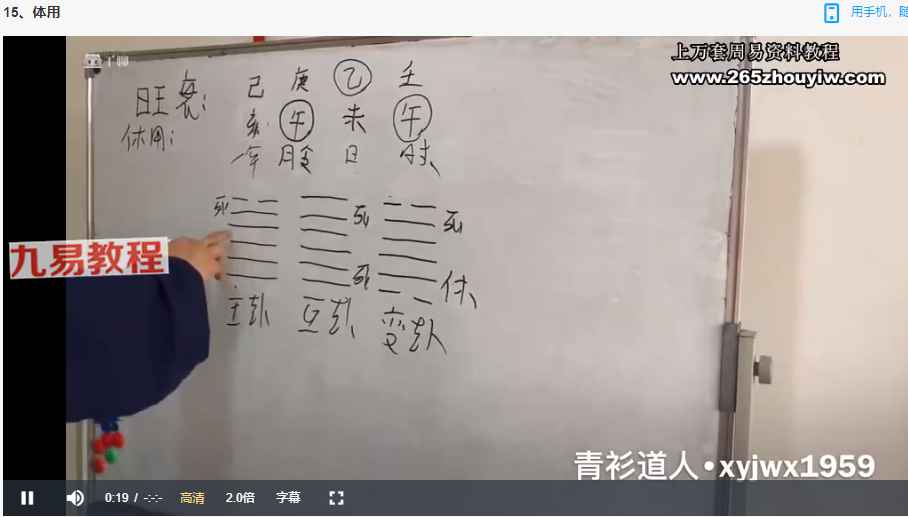 15、体用
用手机，随
上万套周易资料教程
www.265zhouyiw.com
己 庚 乙 壬
旺衰：
亥 午 未 午
体用：
年 月 日 时
死 死 死
死 休
九易教程
主卦 互卦 变卦
青衫道人•xyjwx1959
0:19 / -:-:- 高清 2.0倍 字幕